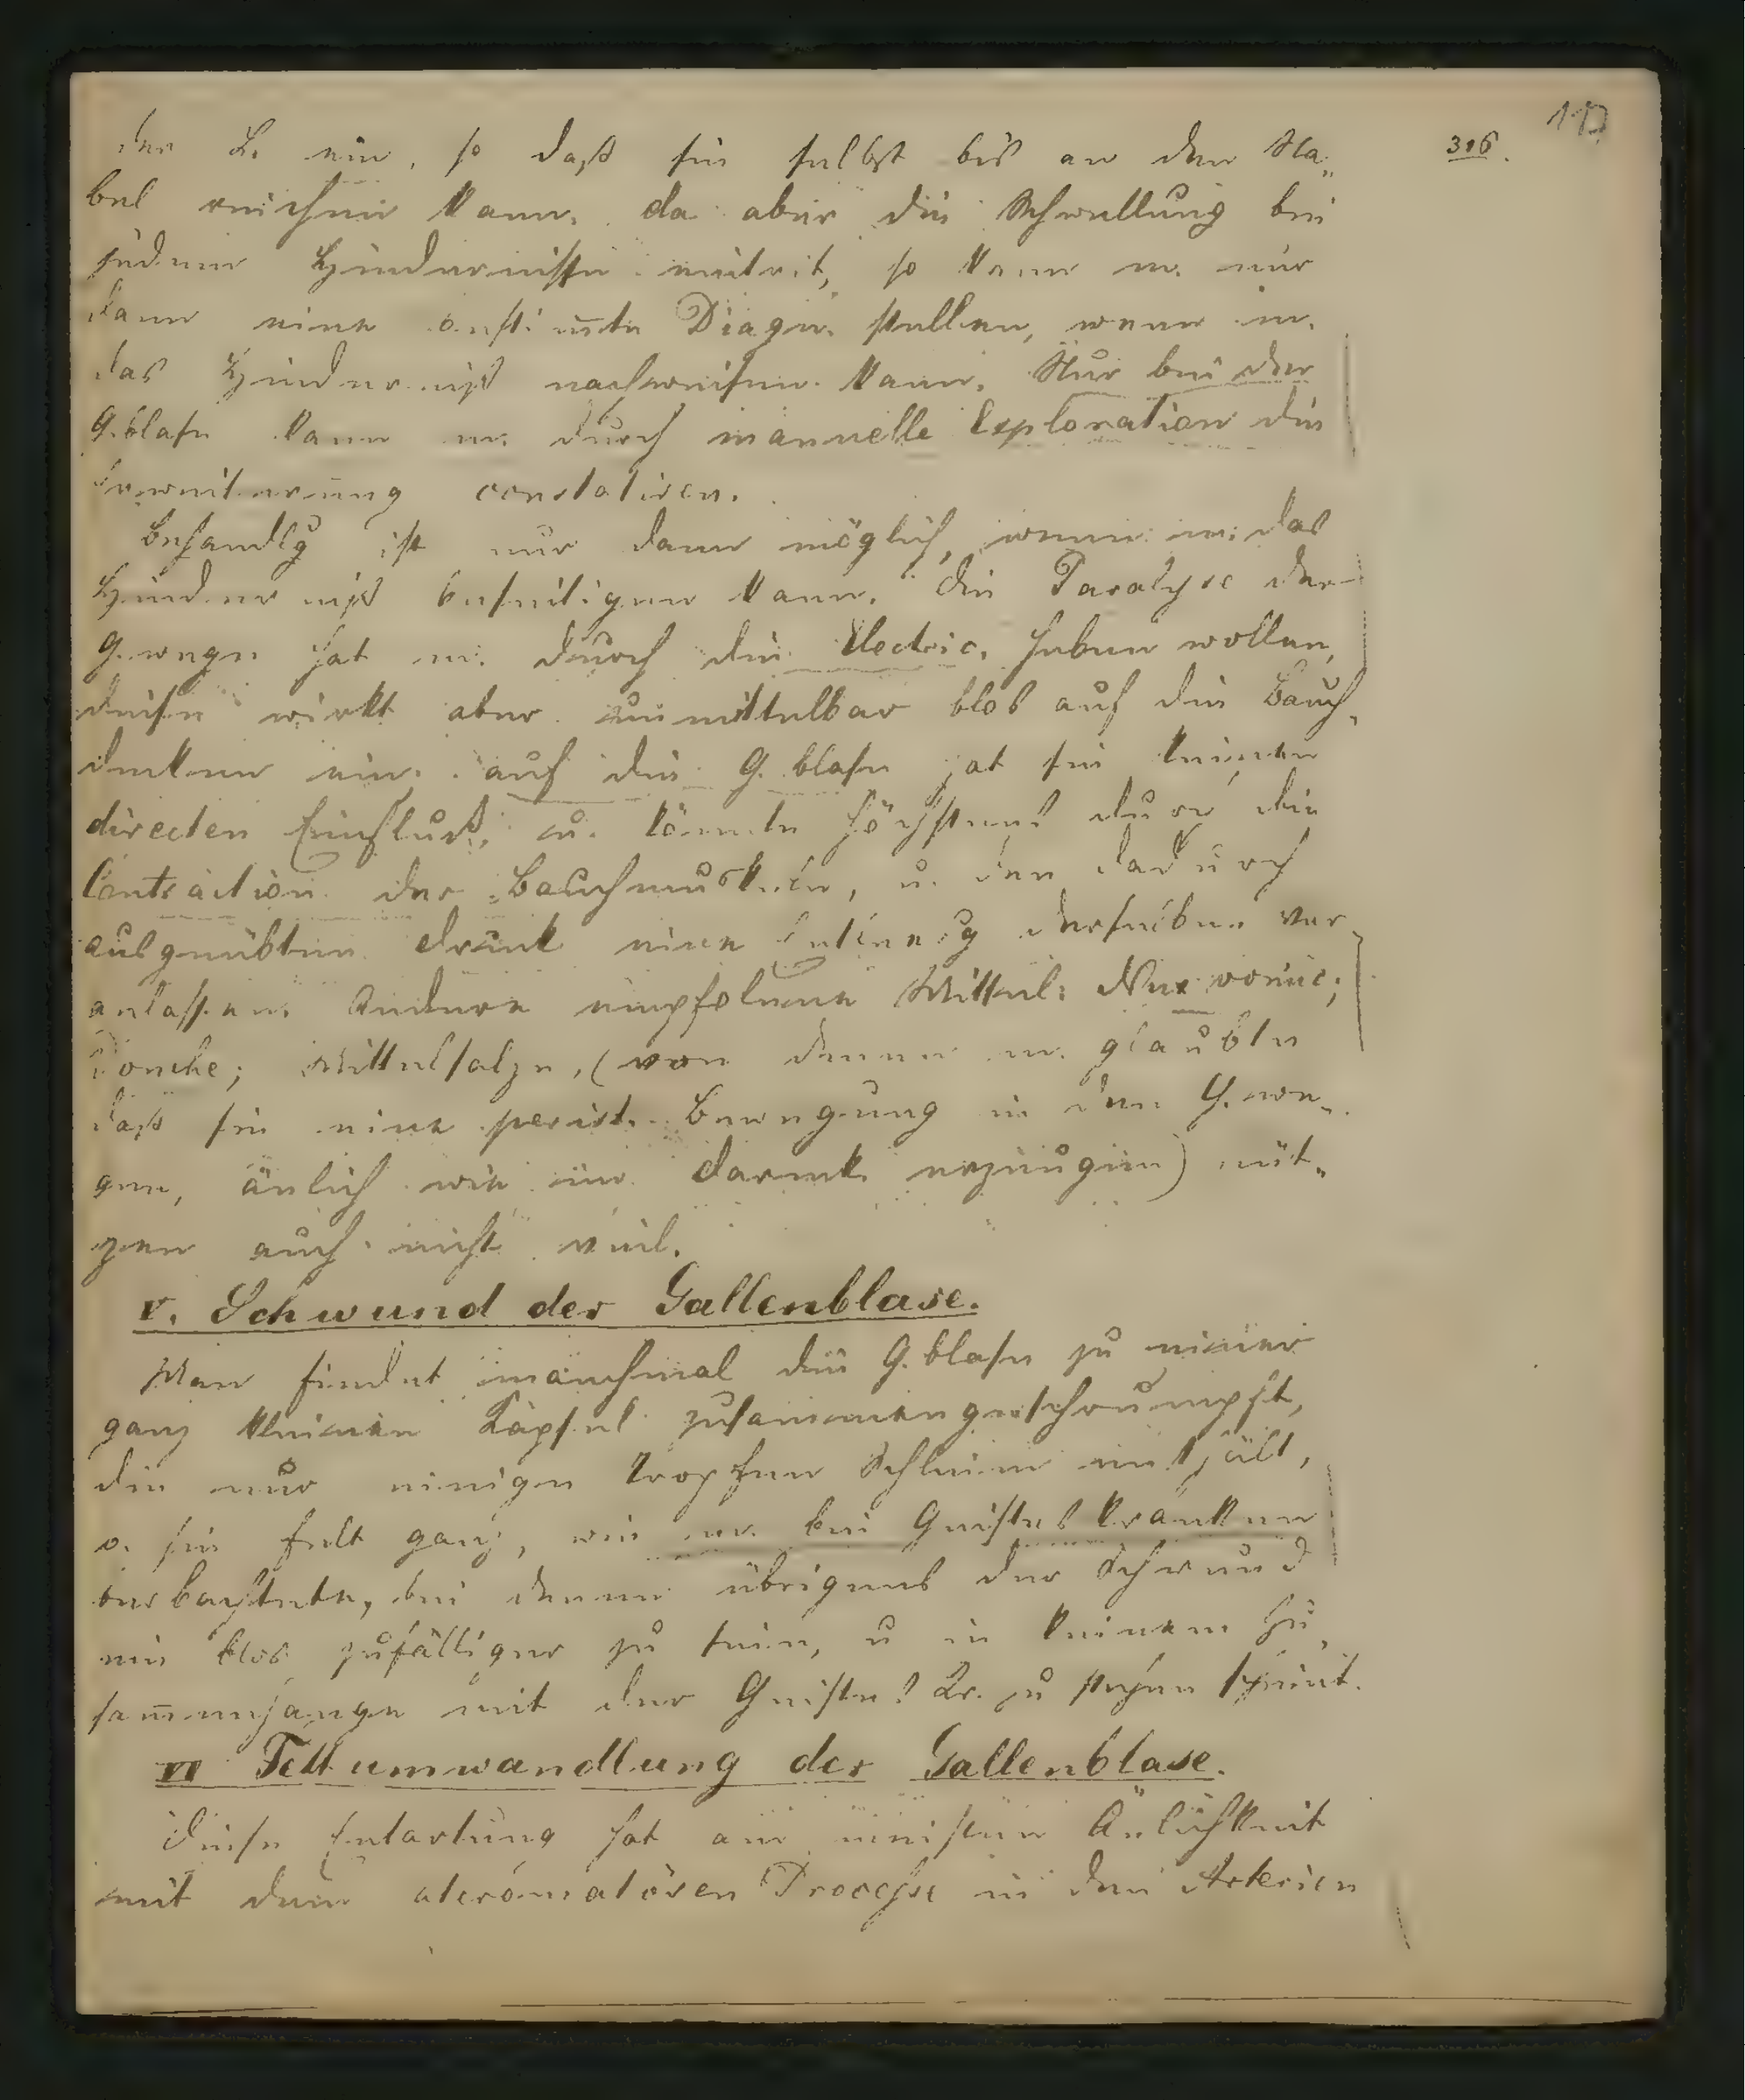 117
316.
der L. ein, so daß sie selbst bis an den Na„
bel reichen kann. da aber die Schwellung bei
jedem Hindernisse eintrit, so kann m. nur
dann eine bestim̅te Diagn. stellen, wenn m.
das Hinderniß nachweisen kann. Nur bei der
G.blase kann m. durch manuelle Exploration die
Erweiterung constatiren.
Behandlg ist nur dann möglich, wenn m. das
Hinderniß beseitigen kann. Die Paralyse der
G.wege hat m. durch die Electric. heben wollen,
diese wirkt aber unmittelbar blos auf die Bauch„
decken ein. auf die G.blase hat sie keinen
directen Einfluß, u. könnte höchstens durch die
Contraction der Bauchmuskeln, u. den dadurch
ausgeübten Druck eine Entleerg derselben ver„
anlassen. Andere empfolene Mittel: Nux vomic;
Douche; Mittelsalze, (von denen m. glaubte
daß sie eine perist. Bewegung in den G.we„
gen, änlich wie im Darmk. erzeugen) nüt„
zen auch nicht viel.
V. Schwund der Gallenblase.
Man findet manchmal die G.blase zu einer
ganz kleinen Kapsel zusammengeschrumpft,
die nur einige Tropfen Schleim enthält,
o. sie felt ganz, wie m. bei Geisteskranken
beobachtete, bei denen übrigens der Schwund
ein blos zufälliger zu sein, u in keinem Zu„
sam̅enhange mit der Geistes Kr. zu stehen scheint.
VI Fettumwandlung der Gallenblase.
Diese Entartung hat am meisten Änlichkeit
mit dem ateromatösen Processe in den Arterien